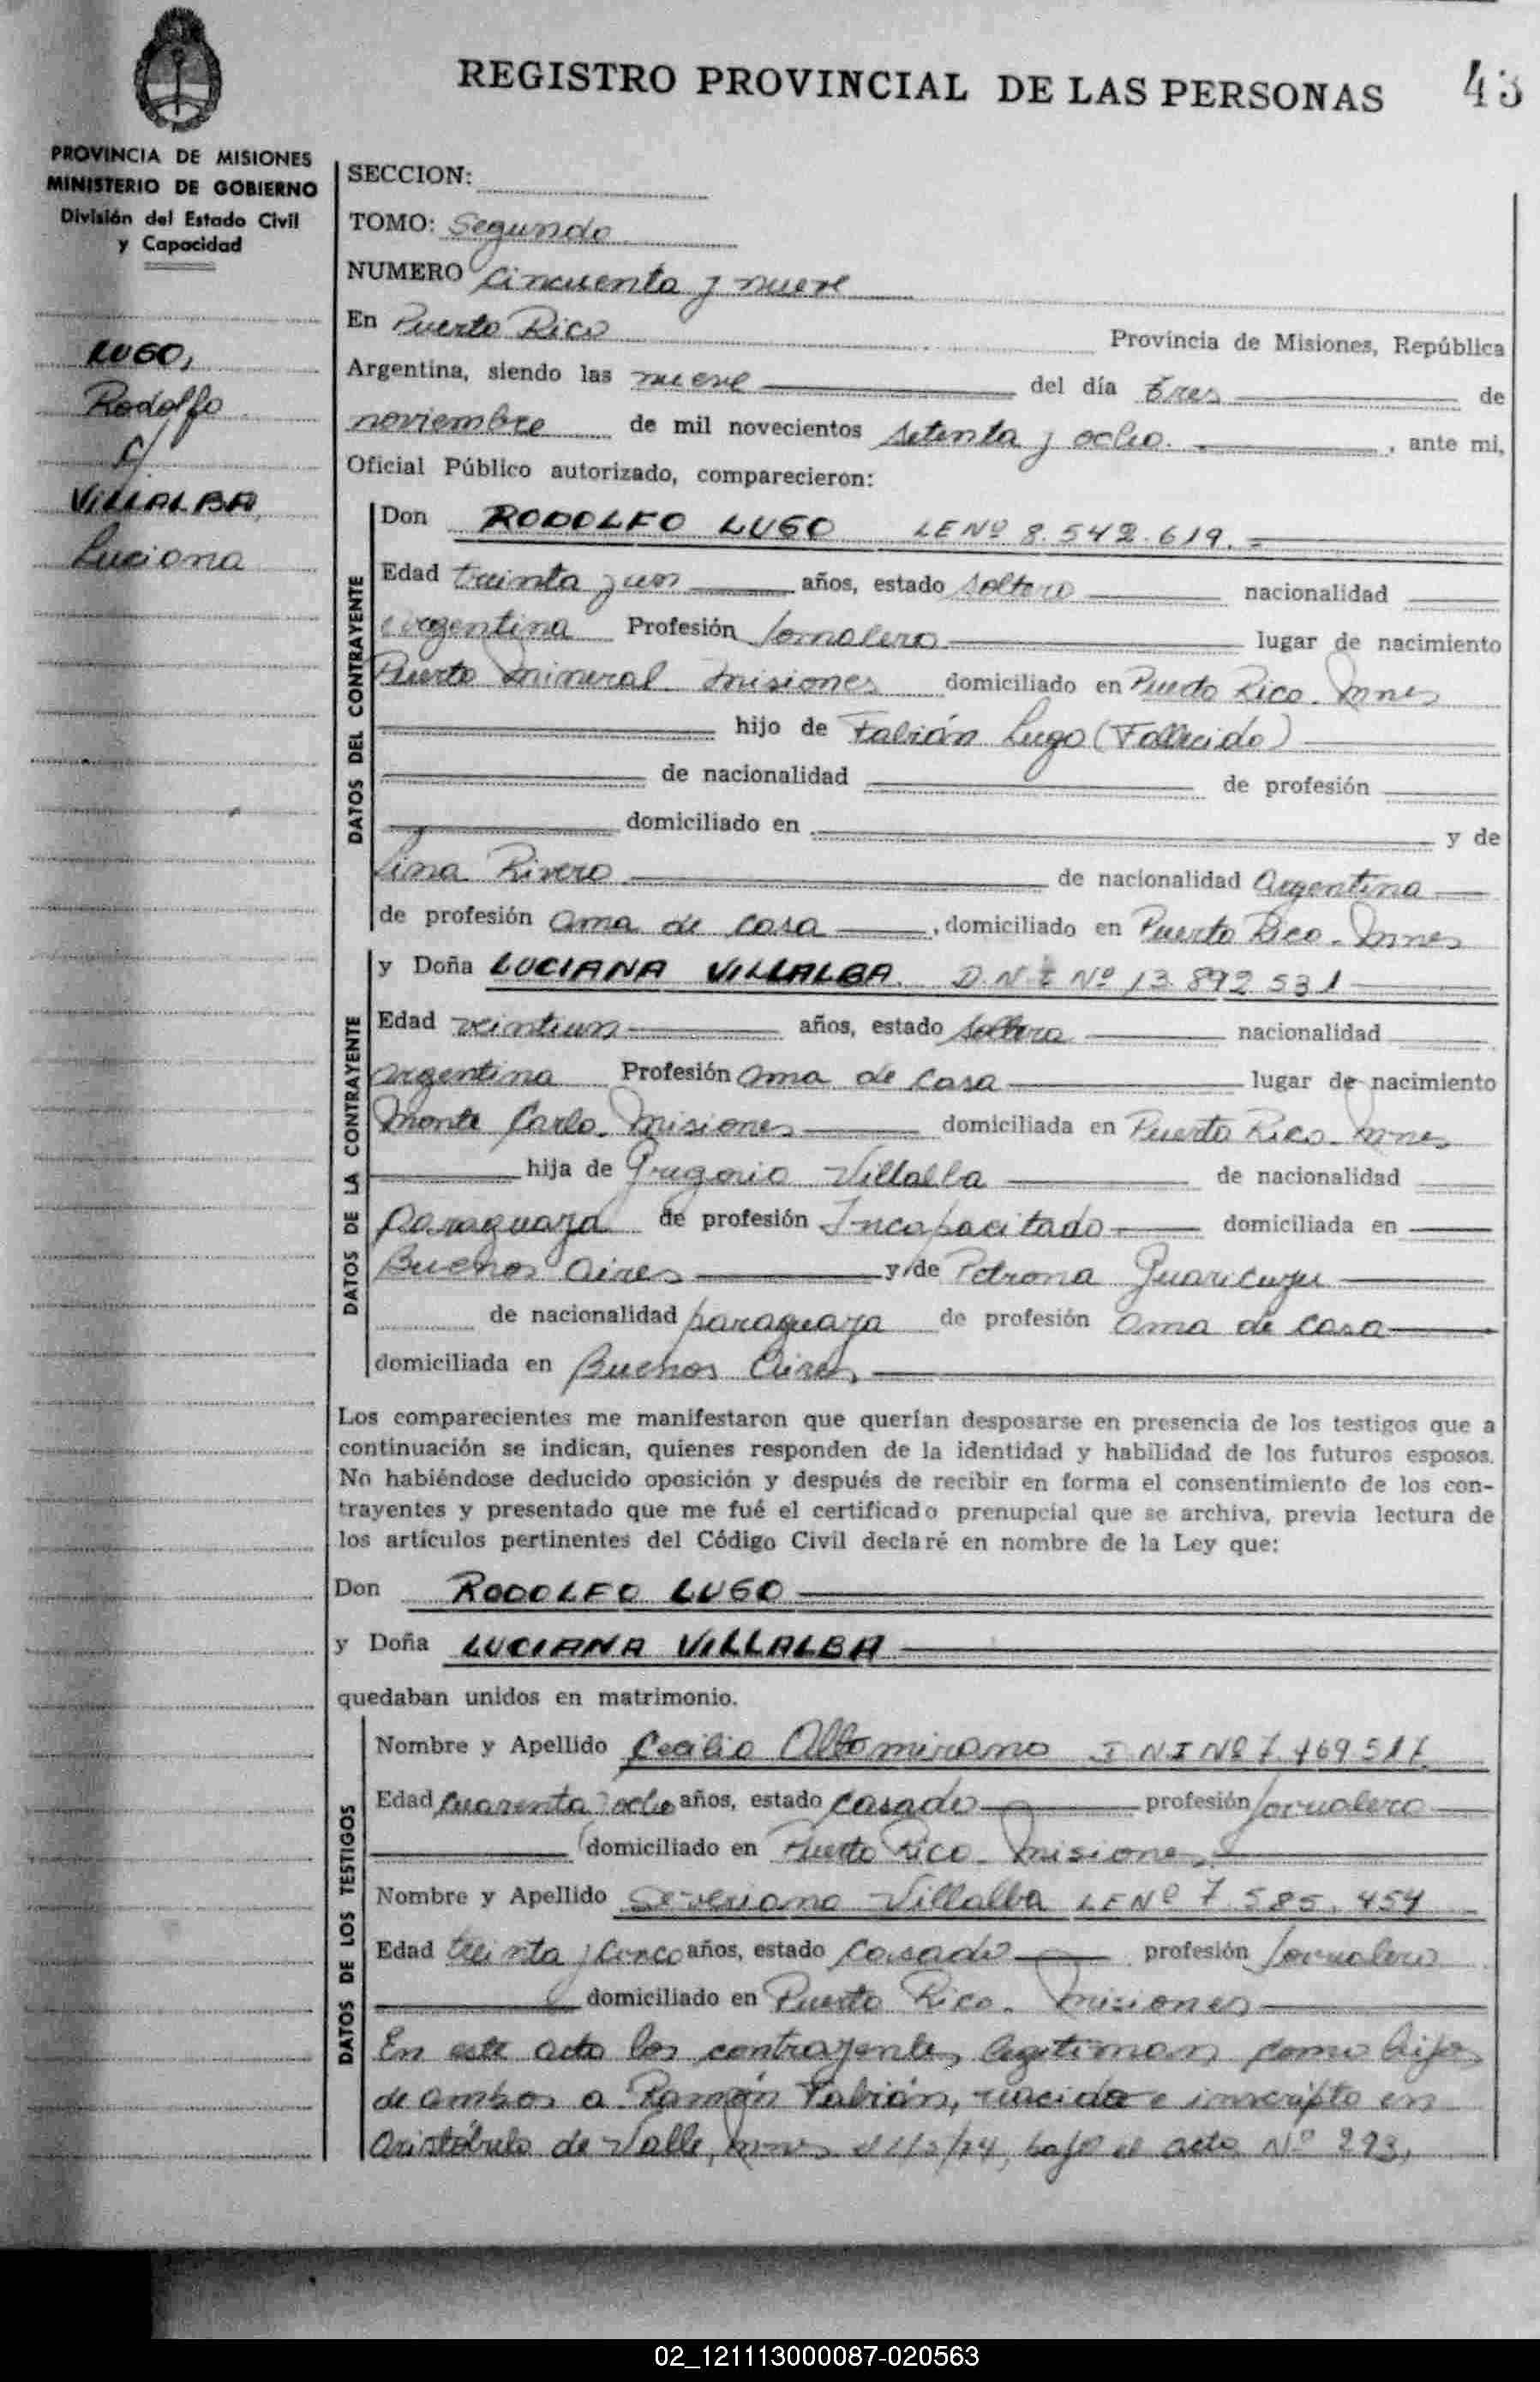 REGISTRO PROVINCIAL DE LAS PERSONAS 43
PROVINCIA DE MISIONES
MINISTERIO DE GOBIERNO
División del Estado Civil
y Capacidad
LUGO,
Rodolfo
c/
VILLALBA
Luciana
SECCION:
TOMO: Segundo
NUMERO Cincuenta y nueve
En Puerto Rico Provincia de Misiones, República
Argentina, siendo las nueve del día tres de
noviembre de mil novecientos setenta y ocho. , ante mi,
Oficial Público autorizado, comparecieron:
DATOS DEL CONTRAYENTE
Don RODOLFO LUGO LE Nº 8.542.619.=
Edad treinta y un años, estado soltero nacionalidad
argentina Profesión Jornalero lugar de nacimiento
Puerto Mineral Misiones domiciliado en Puerto Rico. Mnes
hijo de Fabián Lugo (Fallecido)
de nacionalidad de profesión
domiciliado en y de
Lina Rivero de nacionalidad Argentina
de profesión ama de casa , domiciliado en Puerto Rico. Mnes
DATOS DE LA CONTRAYENTE
y Doña LUCIANA VILLALBA. D.N.I Nº 13.892.531
Edad veintiun años, estado soltera nacionalidad
argentina Profesión ama de casa lugar de nacimiento
Monte Carlo. Misiones domiciliada en Puerto Rico. Mnes
hija de Gregorio Villalba de nacionalidad
paraguaya de profesión Incapacitado domiciliada en
Buenos Aires y de Petrona
de nacionalidad paraguaya de profesión ama de casa
domiciliada en Buenos Aires
Los comparecientes me manifestaron que querían desposarse en presencia de los testigos que a
continuación se indican, quienes responden de la identidad y habilidad de los futuros esposos.
No habiéndose deducido oposición y después de recibir en forma el consentimiento de los con-
trayentes y presentado que me fué el certificado prenupcial que se archiva, previa lectura de
los artículos pertinentes del Código Civil declaré en nombre de la Ley que:
Don RODOLFO LUGO
y Doña LUCIANA VILLALBA
quedaban unidos en matrimonio.
DATOS DE LOS TESTIGOS
Nombre y Apellido Cecilio Altamirano Nº 7.469.517
Edad cuarenta y ocho años, estado casado profesión jornalero
domiciliado en Puerto Rico. Misiones
Nombre y Apellido Severiano Villalba LE Nº 7.585.454
Edad treinta y cinco años, estado casado profesión jornalero
domiciliado en Puerto Rico. Misiones
En este acto los contrayentes legitiman como hijos
de ambos a Ramón Fabián, nacido e inscripto en
Aristóbulo de Valle, Mnes el bajo el acta Nº 293,
02_121113000087-020563